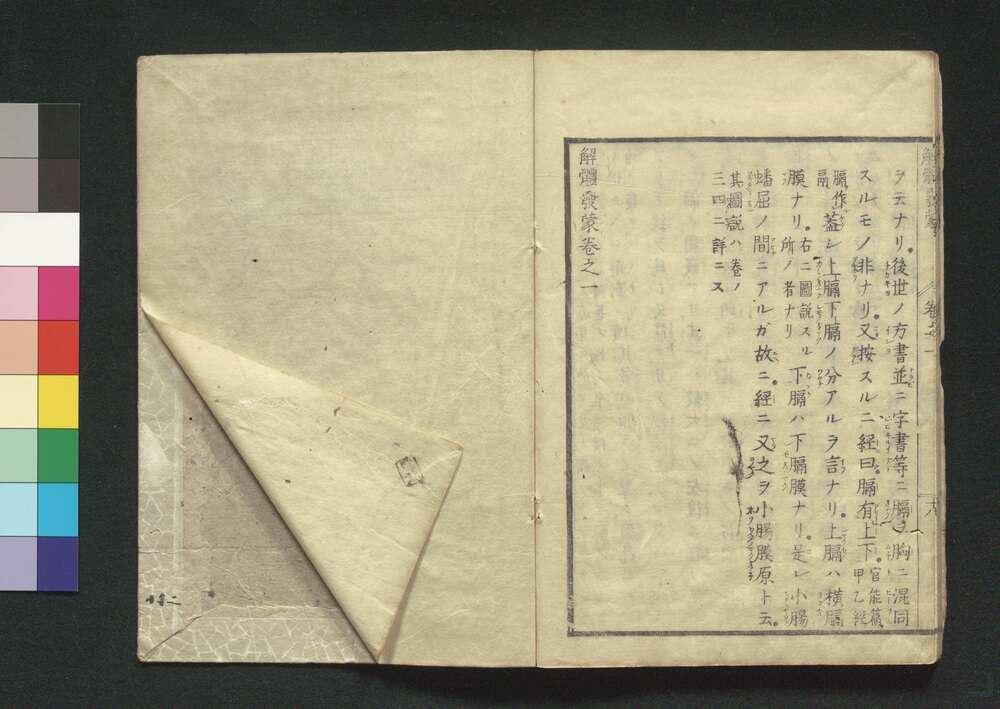 ヲ云ナリ。後世ノ方書並ニ字書等ニ膈ヲ胸ニ混同
スルモノ非ナリ。又按スルニ經曰。膈有上下。官能篇
甲乙經
膈作
鬲
蓋シ上膈下膈ノ分アルヲ言ナリ。上膈ハ橫膈
膜ナリ。
右ニ圖説スル
所ノ者ナリ
下膈ハ下膈膜ナリ。是レ小腸
蟠屈ノ間ニアルガ故ニ。經ニ又之ヲ小腸膜原ト云。
其圖説ハ卷ノ
三四ニ詳ニス
解體發蒙卷之一